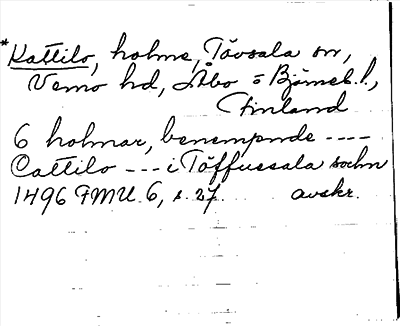 *Kattilo, holme, Tövsala sn,
Vemo hd, Åbo = Björneb. l.,
Finland
6 holmar, benempnde ----
Cattilo --- i Töffuessala sochn
1496 FMU 6, s. 27. avskr.